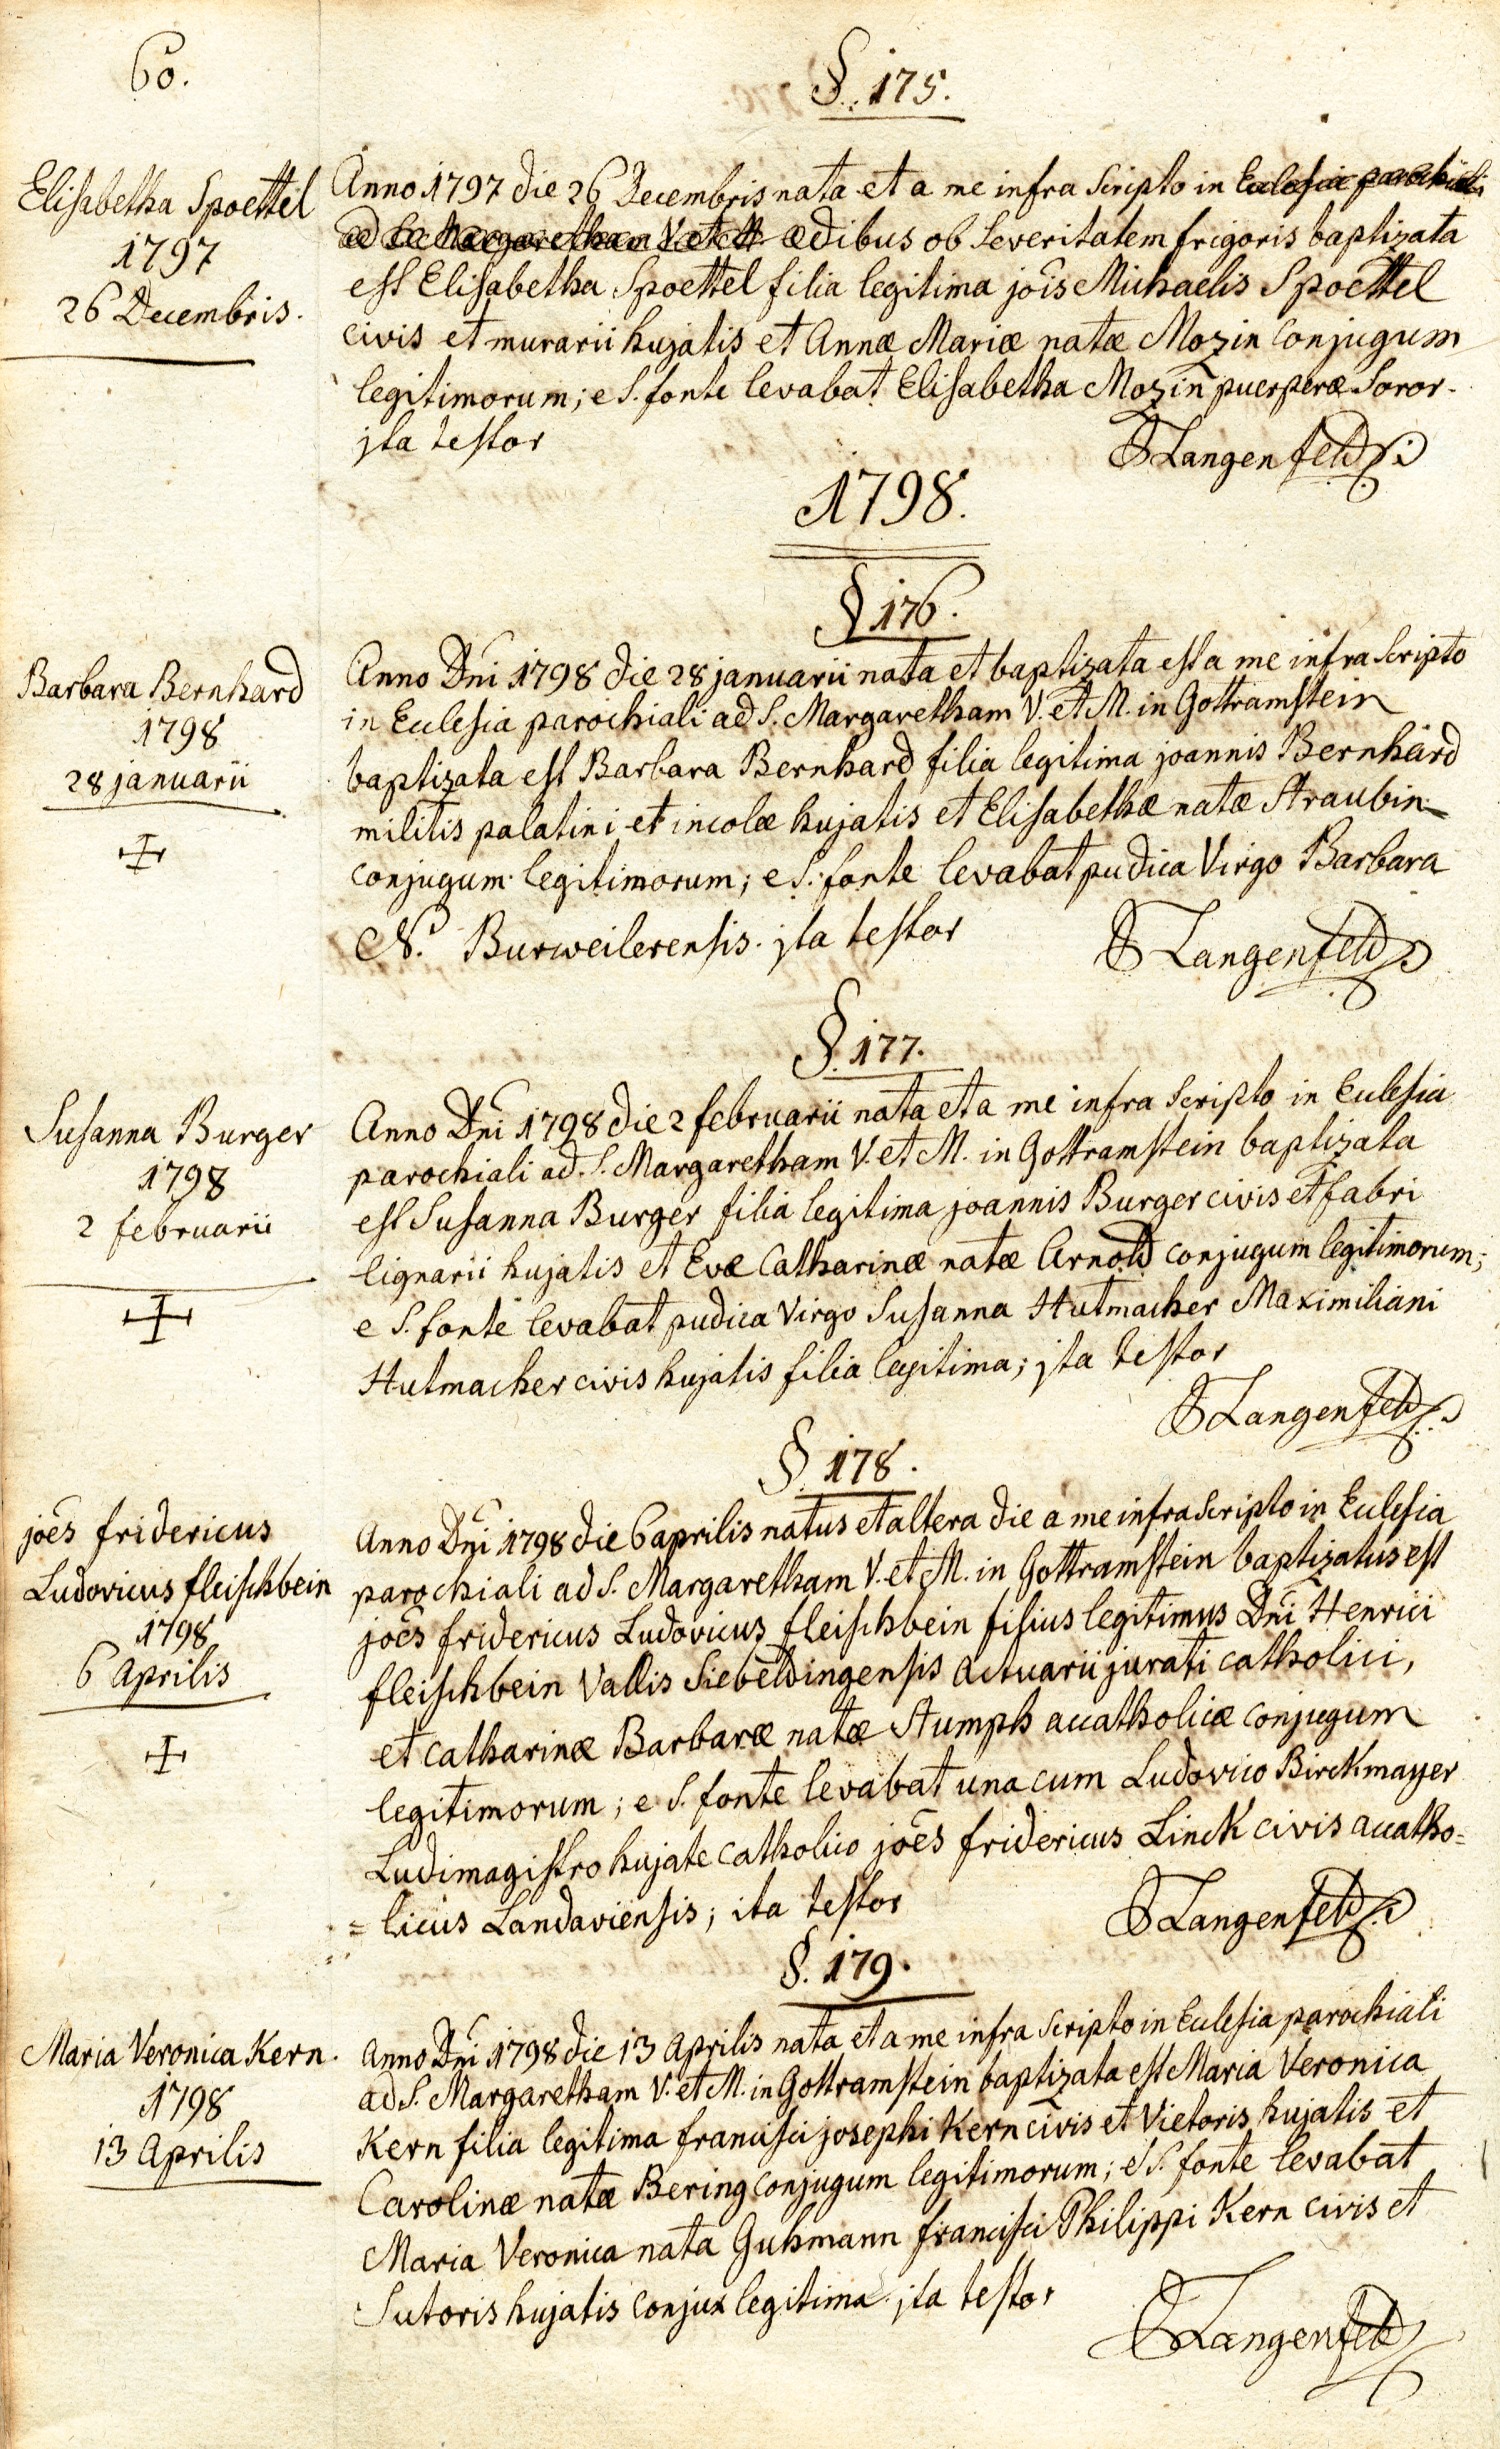 60.
§. 175.
Elisabetha Spoettel
1797
26 Decembris.
Anno 1797 die 26 Decembris nata et a me infra scripto in Eclesia parochiali
ad S. Margaretham V. et M. ædibus ob severitatem frigoris baptizata
est Elisabetha Spoettel filia legitima jois Michaelis Spoettel
civis et murarii hujatis et Annæ Mariæ natæ Mozin conjugum
legitimorum; e S. fonte levabat Elisabetha Mozin puerperæ soror.
jta testor
Langenfeld
1798.
§ 176.
Barbara Bernhard
1798
28 januarii
Anno Dni 1798 die 28 januarii nata et baptizata est a me infra scripto
in Eclesia parochiali ad S. Margaretham V. et M. in Gottramstein
baptizata est Barbara Bernhard filia legitima joannis Bernhard
militis palatini et incolæ hujatis et Elisabethæ natæ Straubin
conjugum legitimorum; e S. fonte levabat pudica Virgo Barbara
N. Burweilerensis. jta testor
Langenfeld
§. 177.
Susanna Burger
1798
2 februarii
Anno Dni 1798 die 2 februarii nata et a me infra scripto in Eclesia
parochiali ad S. Margaretham V. et M. in Gottramstein baptizata
est Susanna Burger filia legitima joannis Burger civis et fabri
lignarii hujatis et Evæ Catharinæ natæ Arnold conjugum legitimorum;
e S. fonte levabat pudica Virgo Susanna Hutmacher Maximiliani
Hutmacher civis hujatis filia legitima; jta testor
Langenfeld
§. 178.
joes fridericus
Ludovicus fleischbein
1798
6 Aprilis
Anno Dni 1798 die 6 aprilis natus et altera die a me infra scripto in Eclesia
parochiali ad S. Margaretham V. et M. in Gottramstein baptizatus est
joes fridericus Ludovicus fleischbein filius legitimus Dni Henrici
fleischbein Vallis Siebeldingensis actuarii jurati catholici,
et catharinæ Barbaræ natæ Stumph acatholicæ conjugum
legitimorum; e S. fonte levabat una cum Ludovico Birckmayer
Ludimagistro hujate catholico joes fridericus Linck civis acatho=
=licus Landaviensis; ita testor
Langenfeld
§. 179.
Maria Veronica Kern.
1798
13 Aprilis
Anno Dni 1798 die 13 Aprilis nata et a me infra scripto in Eclesia parochiali
ad S. Margaretham V. et M. in Gottramstein baptizata est Maria Veronica
Kern filia legitima francisci josephi Kern civis et Vietoris hujatis et
Carolinæ natæ Bering conjugum legitimorum; e S. fonte levabat
Maria Veronica nata Guhmann francisci Philippi Kern civis et
Sutoris hujatis conjux legitima. jta testor
Langenfeld